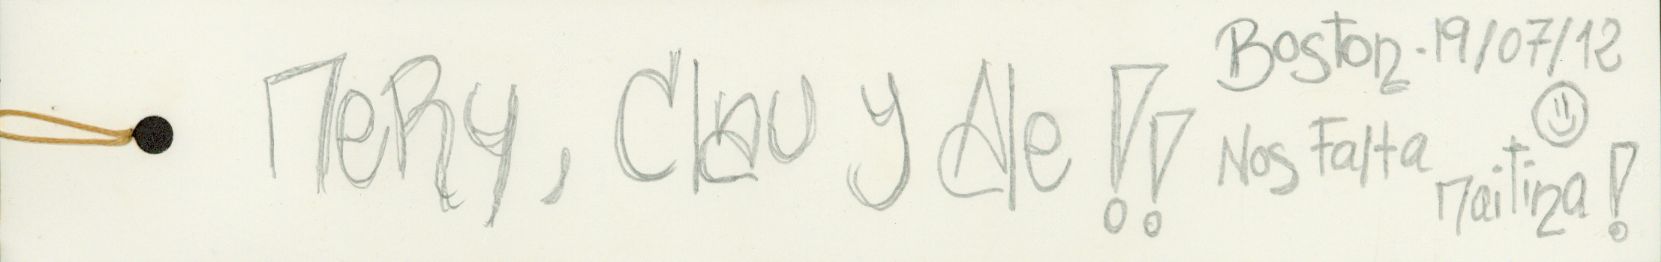 Mery, Clau y Ale!!
Boston - 19/07/12
Nos Falta
Maitina!